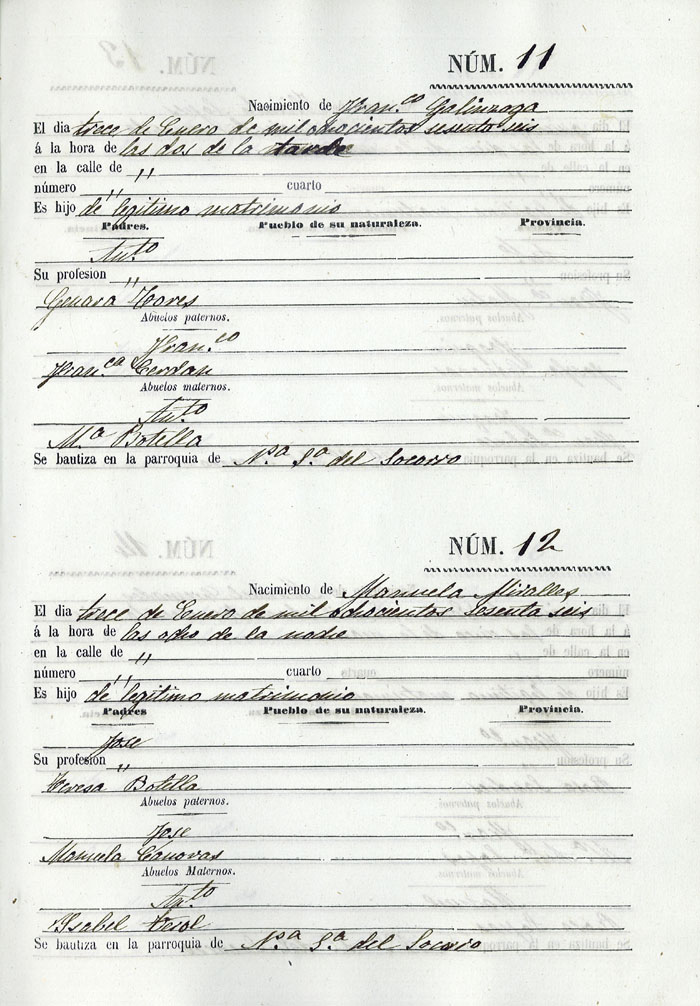 NÚM. 11
Nacimiento de Fran.co Galinzoga
El dia trece de Enero de mil ochocientos sesenta seis
á la hora de las dos de la tarde
en la calle de "
número " cuarto
Es hijo de legitimo matrimonio
Padres. Pueblo de su naturaleza. Provincia.
Ant.o
Su profesion "
Genara Tores
Abuelos paternos.
Fran.co
Fran.ca Cerdan
Abuelos maternos.
Ant.o
M.a Botella
Se bautiza en la parroquia de N.a S.a del Socorro
NÚM. 12
Nacimiento de Manuela Miralles
El dia trece de Enero de mil ochocientos sesenta seis
á la hora de las ocho de la noche
en la calle de "
número " cuarto
Es hijo de legitimo matrimonio
Padres Pueblo de su naturaleza. Provincia.
Jose
Su profesion "
Teresa Botella
Abuelos paternos.
Jose
Manuela Canovas
Abuelos Maternos.
Ant.o
Ysabel Terol
Se bautiza en la parroquia de N.a S.a del Socorro